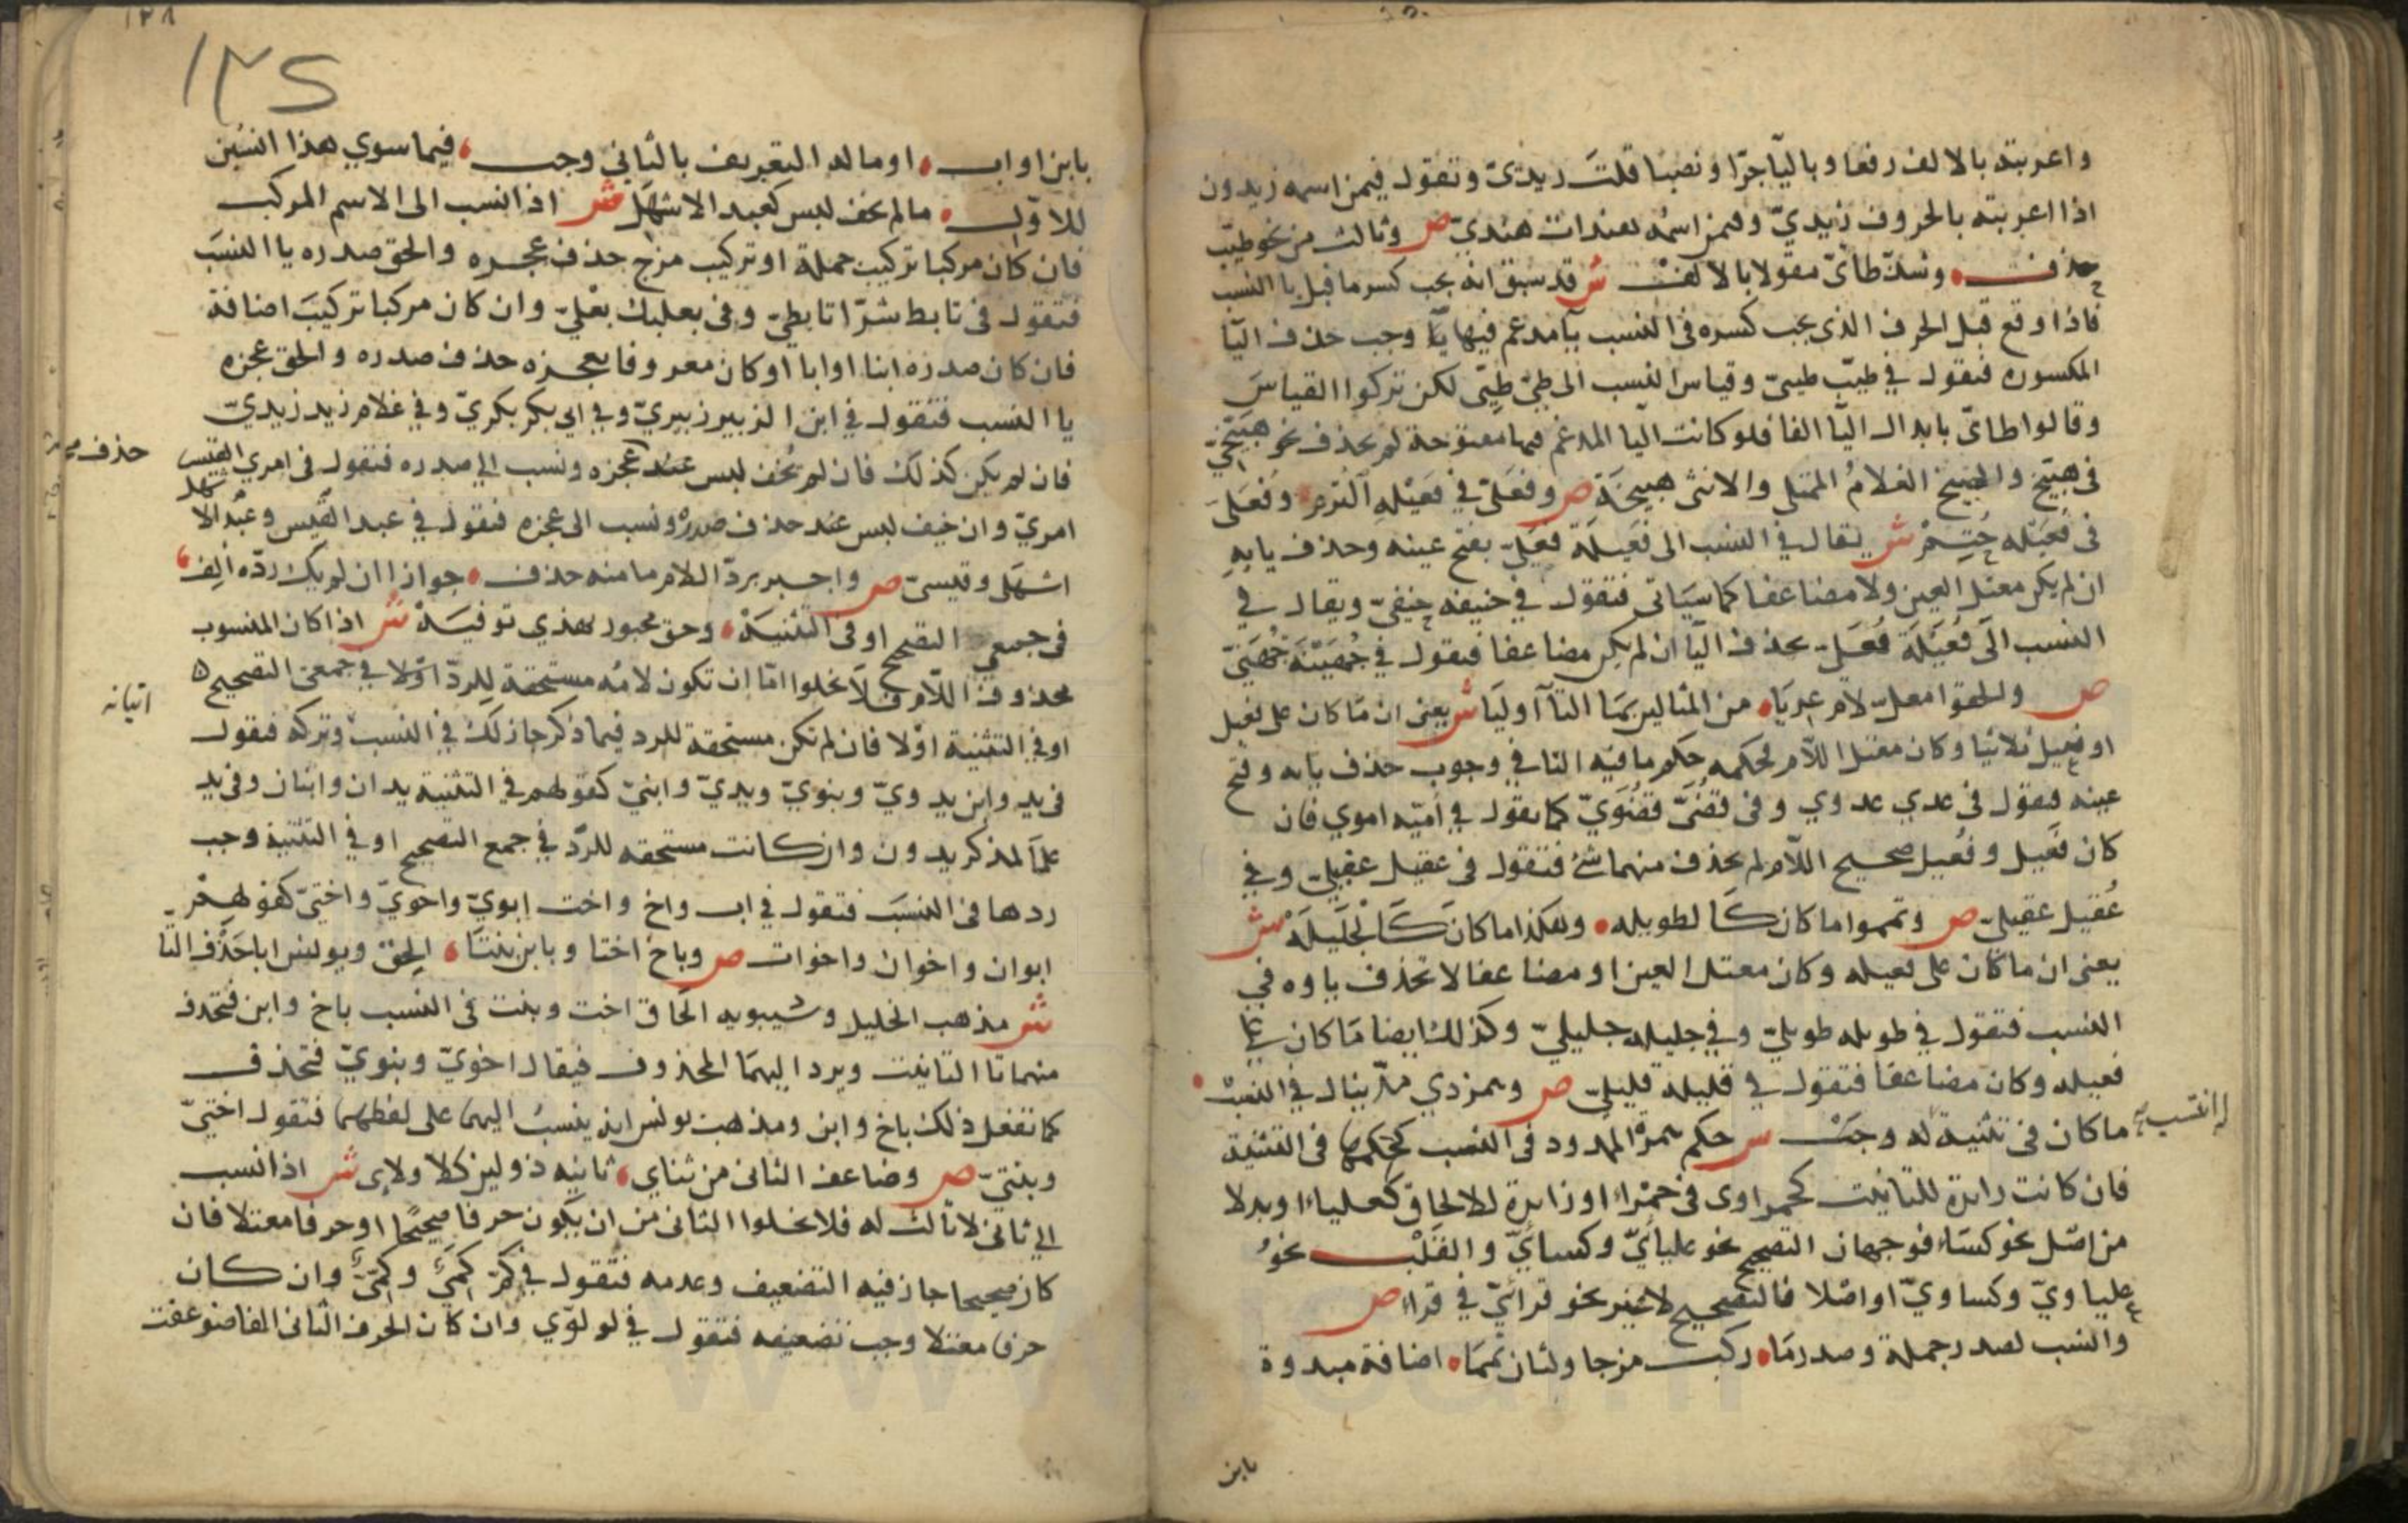 واعربته بالالف رفعا وباليا جرا ونصبا قلت زيديّ وتقول فيمن اسمه زيدون
اذا اعربته بالحروف زيديّ وفيمن اسمه هندات هنديّ ص وثالث من نحو طيّب
حذف وشذ طائيّ مقولا بالالف ش قد سبق انه يجب كسر ما قبل يا النسب
فاذا وقع قبل الحرف الذي يجب كسره في النسب يا مدغم فيها يا وجب حذف اليا
المكسوره فتقول في طيّب طيبيّ وقياس النسب الى طيّ طيئي لكن تركوا القياس
وقالوا طائيّ بابدال اليا الفا فلو كانت اليا المدغم فيها مفتوحة لم تحذف نحو هبيّخيّ
في هبيّخ والهبيخ الغلام الممتلي والانثى هبيخة ص وفعليّ في فعيلة التزم وفعليّ
في فعيلة حتم ش يقال في النسب الى فعيلة فعليّ بفتح عينه وحذف يايه
ان لم يكن معتل العين ولا مضاعفا كما سياتي فتقول في حنيفه حنفيّ ويقال في
النسب الى فعيلة فعليّ بحذف اليا ان لم يكن مضاعفا فيقول في جهينة جهنيّ
ص والحقوا معلّ لام عريا من المثالين بما التا اوليا ش يعني ان ما كان على فعيل
او فعيل بلا تا وكان معتل اللام فحكمه حكم ما فيه التا في وجوب حذف يايه وفتح
عينه فيقول في عدي عدوي وفي قصيّ قصويّ كما يقول في اميّه اموي فان
كان فعيل وفعيل صحيح اللام لم يحذف منهما شئ فتقول في عقيل عقيليّ وفي
عُقيل عقيليّ ص وتمموا ما كان كالطويله وهكذا ما كان كالجليله ش
يعني ان ما كان على فعيله وكان معتل العين او مضاعفا لا تحذف ياوه في
النسب فتقول في طويله طويليّ وفي جليله جليليّ وكذلك ايضا ما كان على
فعيله وكان مضاعفا فتقول في قليله قليليّ ص وهمز ذي مدّ ينال في النسب
ما كان في تثنية له وجب ش حكم همزة الممدود في النسب كحكمها في التثنية
له انتسب
فان كانت زايدة للتانيث كحمراوى في حمراء او زايدة للالحاق كعلباء او بدلا
من اصل نحو كساء فوجهان التصحيح نحو علبائيّ وكسائيّ والقلب نحو
علباويّ وكساويّ او اصلا فالتصحيح لاغير نحو قرائيّ في قراء ص
وانسب لصدر جملة وصدر ما ركب مزجا ولثان تمما اضافة مبدوة
بابن
١٢٨
١٢٥
بابن او اب او ما له التعريف بالثاني وجب فيما سوي هذا انسبن
للاوّل ما لم يخف لبس كعبد الاشهل ش اذا نسب الى الاسم المركب
فان كان مركبا تركيب جملة او تركيب مزج حذف عجزه والحق صدره يا النسب
فتقول في تابط شرّا تابطيّ وفي بعلبك بعليّ وان كان مركبا تركيب اضافة
فان كان صدره ابنا او ابا او كان معروفا بعجزه حذف صدره والحق عجزه
يا النسب فتقول في ابن الزبير زبيريّ وفي ابي بكر بكريّ وفي غلام زيد زيديّ
فان لم يكن كذلك فان لم يخف لبس عند عجزه ونسب الى صدره فتقول في امري القيس
حذف
امريّ وان خيف لبس عند حذف صدره ونسب الى عجزه فتقول في عبد القيس وعبد الاشهل
اشهلي وقيسيّ ص واجبر بردّ اللام ما منه حذف جوازا ان لم يك ردّه الف
في جمعي التصحيح او في التثنية وحق مجبور بهذي توفيه ش اذا كان المنسوب
محذوف اللام فلا يخلوا امّا ان تكون لامه مستحقة للردّ اوّلا في جمعي التصحيح
اتيانه
او في التثنية اوّلا فان لم تكن مستحقة للرد فيما ذكر جاز لك في النسب وتركه فتقول
في يد وابن يدويّ وبنويّ ويديّ وابنيّ كقولهم في التثنية يدان وابنان وفي يد
علَما لمذكر يدون وان كانت مستحقه للردّ في جمع التصحيح او في التثنية وجب
ردها في النسب فتقول في اب واخ واخت ابويّ واخويّ واختيّ كقولهم
ابوان واخوان واخوات ص وباخ اختا وبابن بنتا الحق ويونس ابا حذف التا
ش مذهب الخليل وسيبويه الحاق اخت وبنت في النسب باخ وابن فتحذف
منهما تا التانيث ويرد اليهما المحذوف فيقال اخويّ وبنويّ فتحذف
كما تفعل ذلك باخ وابن ومذهب يونس انه ينسب اليهما على لفظهما فتقول اختيّ
وبنتيّ ص وضاعف الثاني من ثناي ثانيه ذو لين كلا ولاى ش اذا نسب
الي ثنائي لا ثالث له فلا يخلوا الثاني من ان يكون حرفا صحيحا او حرفا معتلا فان
كان صحيحا جاز فيه التضعيف وعدمه فتقول في كم كميّ وكمّيّ وان كان
حرفا معتلا وجب تضعيفه فتقول في لو لوّي وان كان الحرف الثاني الفا ضوعفت